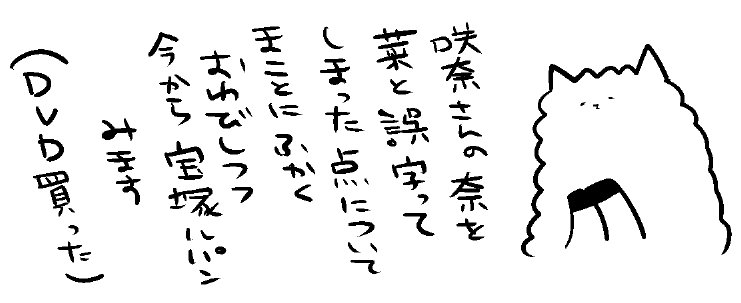 咲奈さんの奈を
菜と誤字って
しまった点について
まことにふかく
おわびしつつ
今から宝塚ルパン
みます
(DVD買った)